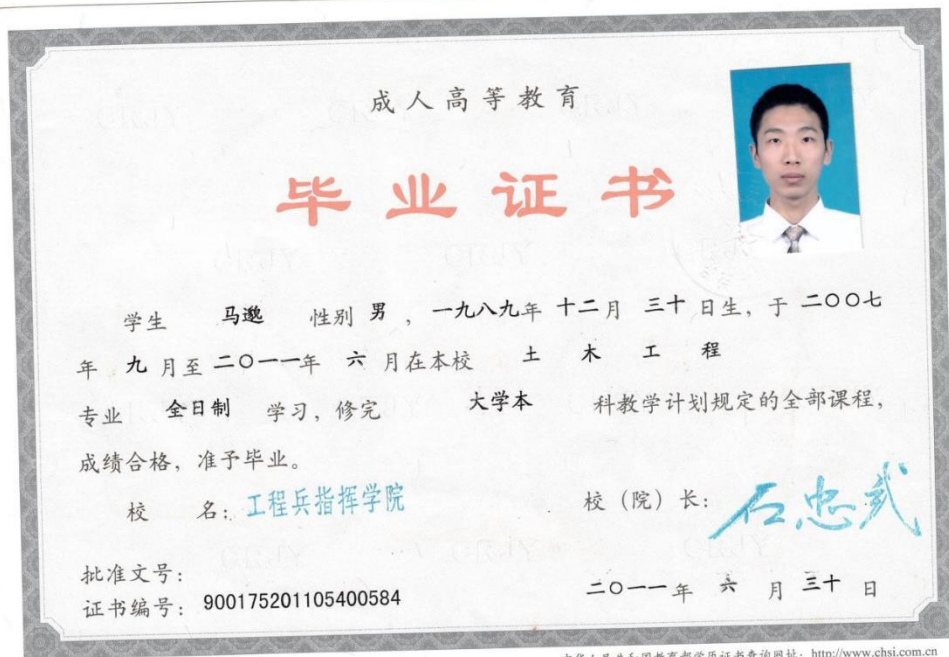 成人高等教育
毕业证书
学生 马邈 性别 男 , 一九八九年 十二月 三十 日生, 于 二〇〇七
年 九 月至 二〇一一年 六 月在本校 土 木 工 程
专业 全日制 学习, 修完 大学本 科教学计划规定的全部课程,
成绩合格, 准予毕业。
校 名: 工程兵指挥学院
校（院）长: 石忠武
批准文号:
证书编号: 900175201105400584
二〇一一年 六 月 三十 日
中华人民共和国教育部学历证书查询网址: http://www.chsi.com.cn